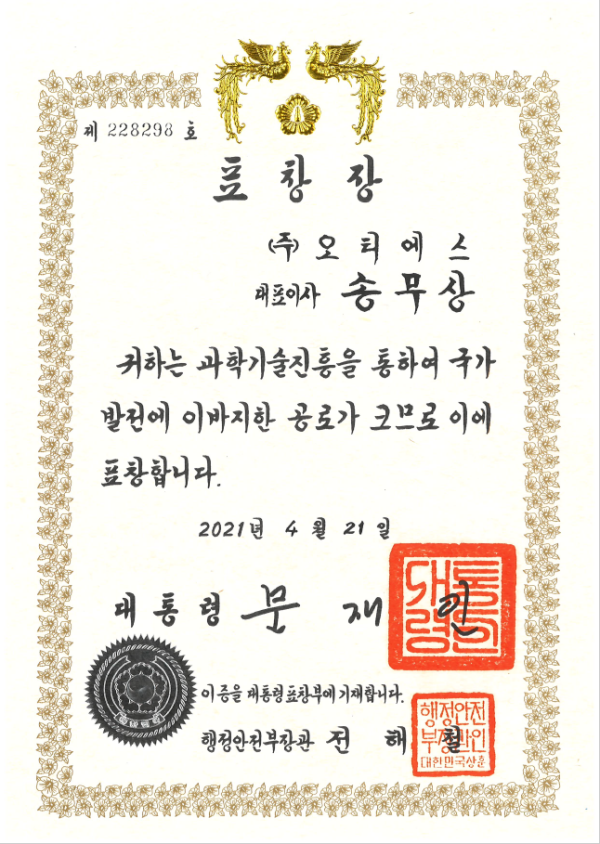 제 228298 호
표 창 장
(주) 오 티 에 스
대표이사 송 무 상
귀하는 과학기술진흥을 통하여 국가
발전에 이바지한 공로가 크므로 이에
표창합니다.
2021년 4 월 21 일
대 통 령 문 재 인
대통령의인
이 증을 대통령표창부에 기재합니다.
행정안전부장관 전 해 철
행정안전
부장관인
대한민국상훈